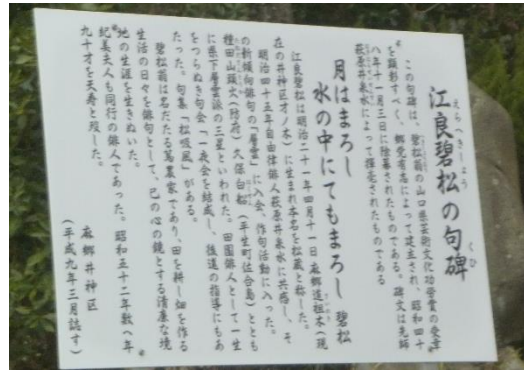 えらへきしょう くひ
江良碧松の句碑
この句碑は、碧松翁の山口県芸術文化功労賞の受章
を顕彰すべく、郷党有志によって建立され、昭和四十
八年十一月三日に除幕されたものである。碑文は先師
萩原井泉水によって揮毫されたものである
月はまろし
水の中にてもまろし 碧松
江良碧松は明治二十一年四月十一日麻郷道祖木(現
在の井神区才ノ木)に生まれ本名を松蔵と称した。
明治四十五年自由律俳人萩原井泉水に共感し、そ
の新傾向俳句の「層雲」に入会、作句活動に入った。
種田山頭火(防府)久保白船(平生町佐合島)ととも
に県下層雲派の三星といわれた。田園俳人として一生
をつらぬき句会「一夜会」を結成し、後進の指導にもあ
たった。句集「松吸風」がある。
碧松翁は名だたる篤農家であり、田を耕し畑を作る
生活の日々を俳句として、己の心の鏡とする清廉な境
地の生涯を生きぬいた。昭和五十二年数へ年
九十才を天寿と歿した。
紀美夫人も同行の俳人であった。
麻郷井神区
(平成九年三月誌す)